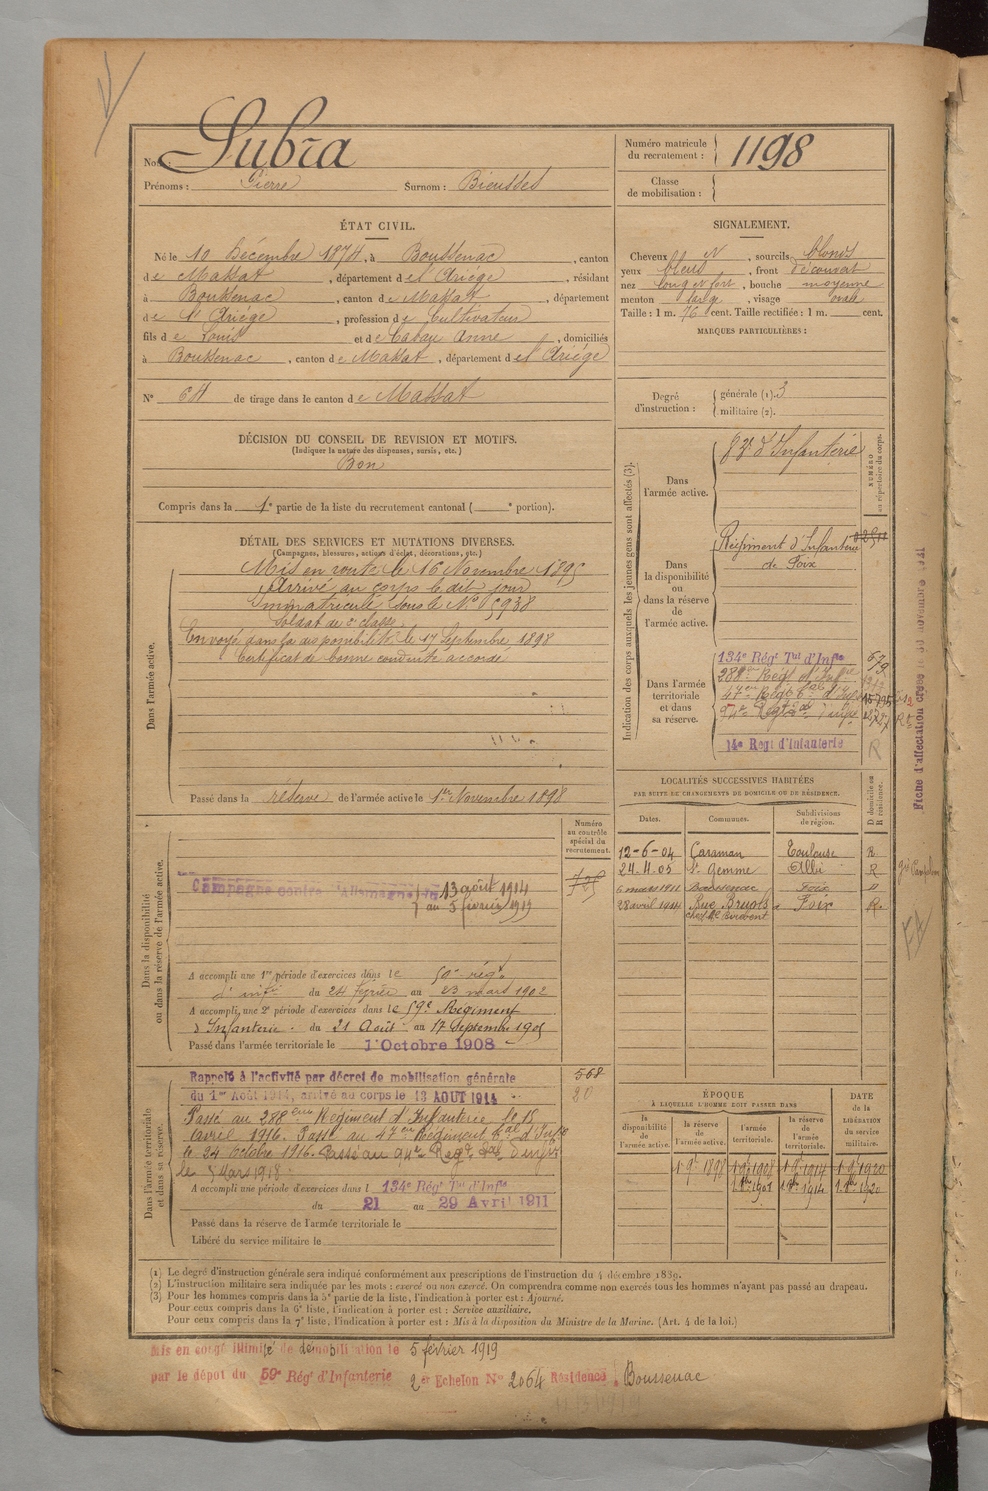 Nom : Lubra
Prénoms : Pierre Surnom : Bieusses
Numéro matricule du recrutement : 1198
Classe de mobilisation :
ÉTAT CIVIL.
Né le 10 Décembre 1874, à Boussenac, canton
de Massat, département de l'Ariège, résidant
à Boussenac, canton de Massat, département
de l'Ariège, profession de Cultivateur
fils de Louis et de Cabau Anne, domiciliés
à Boussenac, canton de Massat, département de l'Ariège
N° 64 de tirage dans le canton de Massat
SIGNALEMENT.
Cheveux N, sourcils blonds
yeux bleus, front découvert
nez long et fort, bouche moyenne
menton large, visage ovale
Taille : 1 m. 76 cent. Taille rectifiée : 1 m. cent.
MARQUES PARTICULIÈRES :
Degré d'instruction : générale (1). 3
militaire (2).
DÉCISION DU CONSEIL DE REVISION ET MOTIFS.
(Indiquer la nature des dispenses, sursis, etc.)
Bon
Compris dans la 1e partie de la liste du recrutement cantonal ( e portion).
DÉTAIL DES SERVICES ET MUTATIONS DIVERSES.
(Campagnes, blessures, actions d'éclat, décorations, etc.)
Dans l'armée active.
Mis en route le 16 Novembre 1895
Arrivé au corps le dit jour
Immatriculé sous le N° 5938
Soldat de 2e classe.
Envoyé dans la disponibilité le 17 Septembre 1898
Certificat de bonne conduite accordé
Passé dans la réserve de l'armée active le 1er Novembre 1898
Indication des corps auxquels les jeunes gens sont affectés (3).
NUMÉRO au répertoire du corps.
Dans l'armée active.
83e d'Infanterie
Dans la disponibilité ou dans la réserve de l'armée active.
Régiment d'Infanterie
de Foix
Dans l'armée territoriale et dans sa réserve.
134e Régt Tal d'Infie 679
288eme Régt d'Infie
47eme Régt d'Infie
14e Régt d'Infanterie R
Fiche d'affectation
LOCALITÉS SUCCESSIVES HABITÉES
PAR SUITE DE CHANGEMENTS DE DOMICILE OU DE RÉSIDENCE.
Dates. Communes. Subdivisions de région. D domicile ou R résidence.
12-6-04 Caraman Toulouse R
24.4.05 Ste Gemme Albi R
6 mars 1911 Boussenac Foix
28 avril 1914 Foix R.
Dans la disponibilité ou dans la réserve de l'armée active.
Numéro au contrôle spécial du recrutement.
Campagne contre l'Allemagne du 13 août 1914
au 5 février 1919
A accompli une 1re période d'exercices dans le 50e régt
d'infie du 24 février au 23 mars 1902
A accompli une 2e période d'exercices dans le 59e Régiment
d'Infanterie. du 21 Août au 17 Septembre 1905
Passé dans l'armée territoriale le 1 Octobre 1908
Dans l'armée territoriale et dans sa réserve.
Rappelé à l'activité par décret de mobilisation générale 568
du 1er Août 1914, arrivé au corps le 13 AOUT 1914 20
Passé au 288eme Régiment d'Infanterie le 15
avril 1916. Passé au 47eme Régiment d'Infie
le 24 Octobre 1916. Passé au
le 5 Mars 1918.
A accompli une période d'exercices dans l 134e Régt Tal d'Infie
du 21 au 29 Avril 1911
Passé dans la réserve de l'armée territoriale le
Libéré du service militaire le
ÉPOQUE
À LAQUELLE L'HOMME DOIT PASSER DANS
la disponibilité de l'armée active. la réserve de l'armée active. l'armée territoriale. la réserve de l'armée territoriale. DATE de la LIBÉRATION du service militaire.
1 9e 1898 1 9e 1908 1 9e 1914 1 9e 1920
(1) Le degré d'instruction générale sera indiqué conformément aux prescriptions de l'instruction du 4 décembre 1889.
(2) L'instruction militaire sera indiquée par les mots : exercé ou non exercé. On comprendra comme non exercés tous les hommes n'ayant pas passé au drapeau.
(3) Pour les hommes compris dans la 5e partie de la liste, l'indication à porter est : Ajourné.
Pour ceux compris dans la 6e liste, l'indication à porter est : Service auxiliaire.
Pour ceux compris dans la 7e liste, l'indication à porter est : Mis à la disposition du Ministre de la Marine. (Art. 4 de la loi.)
Mis en congé illimité de démobilisation le 5 février 1919
par le dépot du 59e Régt d'Infanterie 2er Echelon N° 2064 Résidence Boussenac